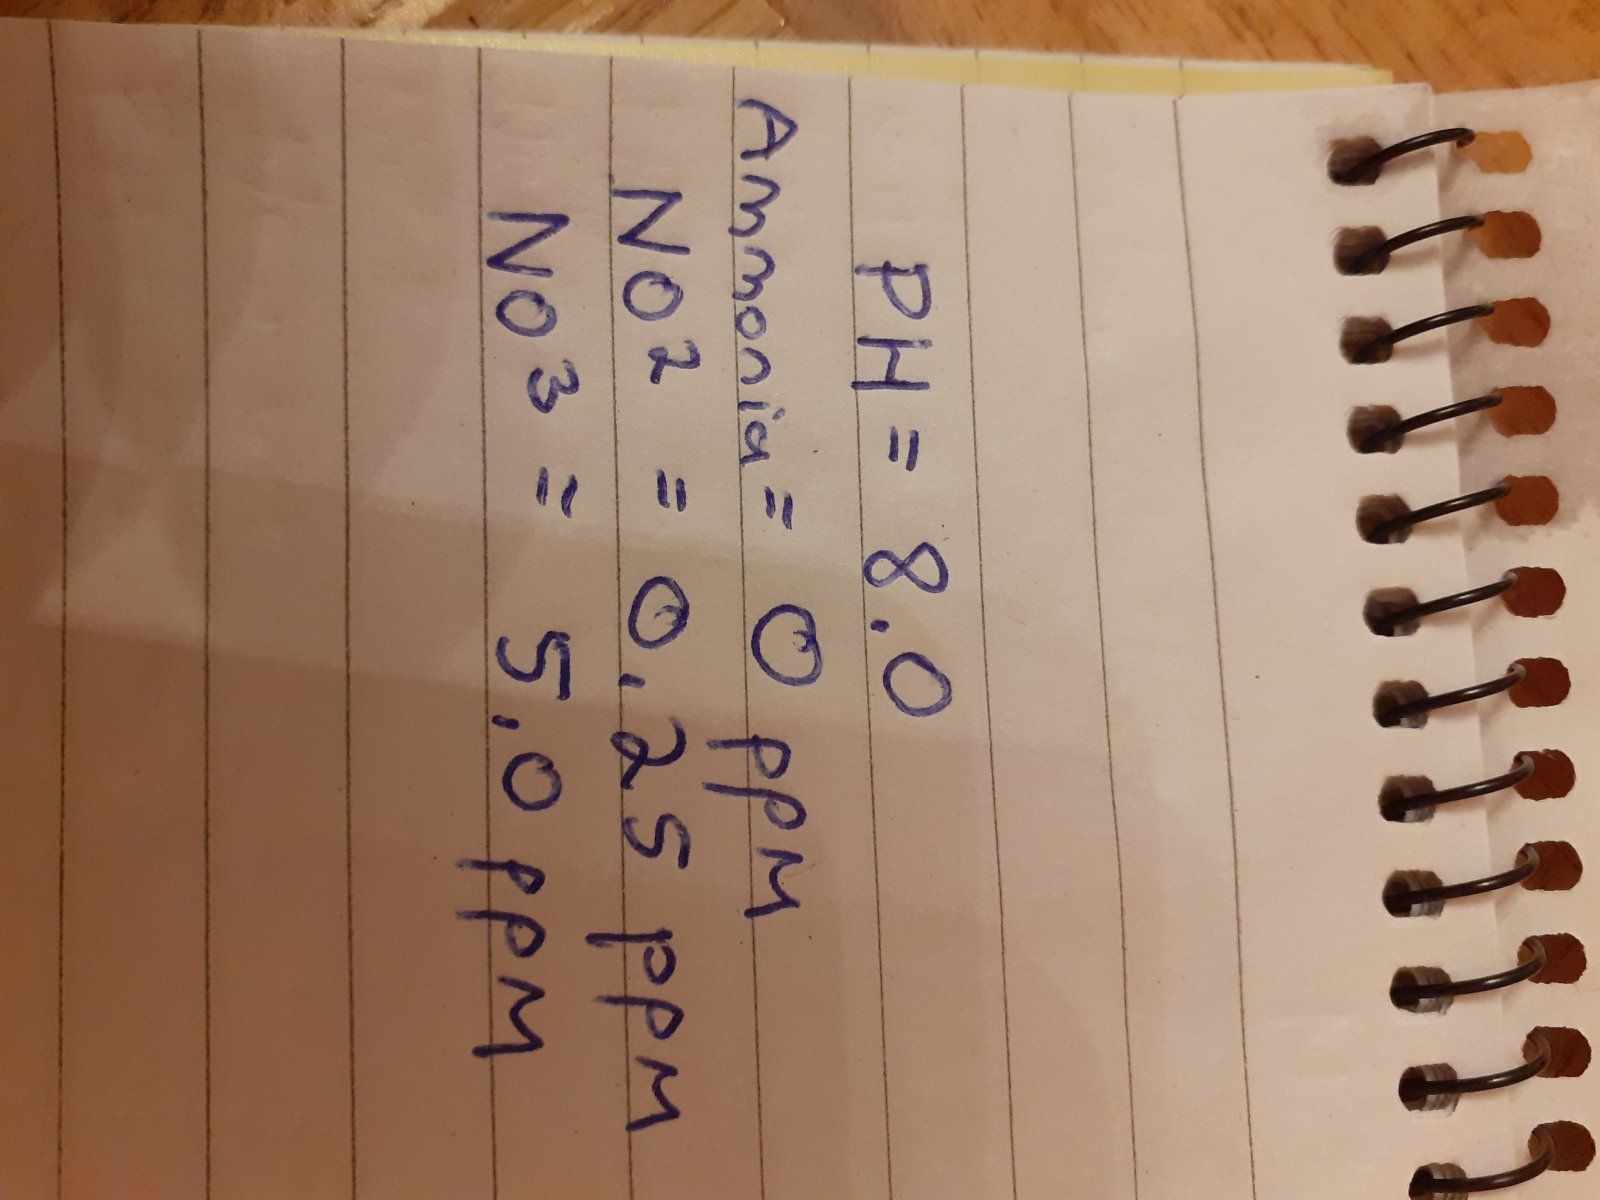 PH = 8.0
Ammonia = 0 ppm
NO² = 0.25 ppm
NO³ = 5.0 ppm